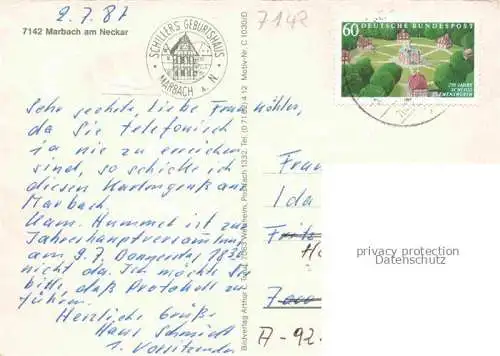 2.7.87
7142 Marbach am Neckar
SCHILLERS GEBURTSHAUS
MARBACH a. N
7142
60 DEUTSCHE BUNDESPOST
250 JAHRE
SCHLOSS
CLEMENSWERTH
Sehr geehrte, liebe Frau Köhler,
da Sie telefonisch
ja nie zu erreichen
sind, so schicke ich
diesen Kartengruß aus
Marbach.
Kam. Hummel ist zur
Jahreshauptversammlung
am 9.7. Donnerstag
nicht da. Ich möchte Sie
bitten, daß Protokoll zu
führen.
Herzliche Grüße
Hans Schmidt
1. Vorsitzender
Bildverlag Arthur F. Postfach 1332, Tel. Motiv-Nr. C 1030/D
Frau
Ida
Fritz
A-92
privacy protection
Datenschutz